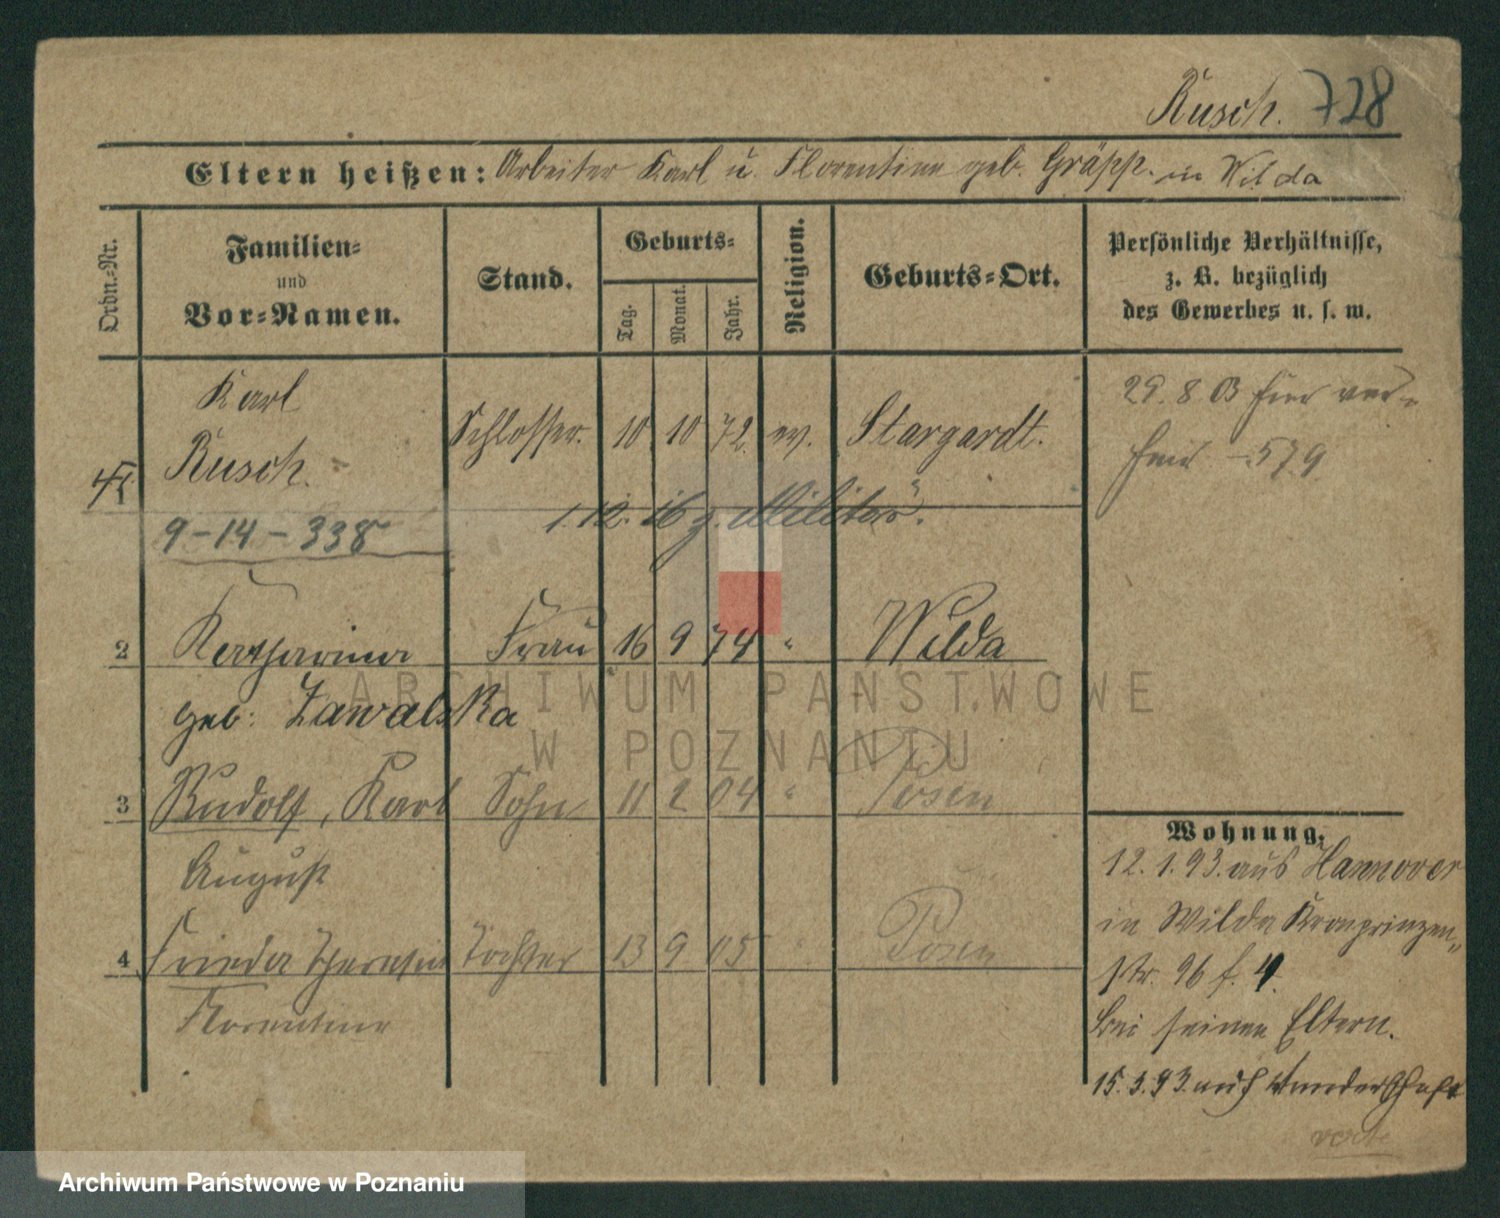 Rusch. 728
Eltern heißen: Arbeiter Karl u. Florentine geb. Gräpp. in Wilda
Ordn.-Nr.
Familien- und Vor-Namen.
Stand.
Geburts-
Tag. Monat. Jahr.
Religion.
Geburts-Ort.
Persönliche Verhältnisse, z. B. bezüglich des Gewerbes u. s. w.
Karl
Rusch. Schlosser. 10 10 72 ev. Stargardt.
29. 8. 03 hier ver-
579
1.12.16 z. Militär.
9-14-338
2 Katharina Frau 16 9 74 " Wilda
geb: Zawalska
3 Rudolf, Karl Sohn 11 2 04 " Posen
August
4 Frieda Therese Tochter 13 9 05 " Posen
Florentine
Wohnung.
12.1.93. aus Hannover
in Wilda Kronprinzen-
str. 96 f. 4.
bei seinen Eltern.
15.3.93. auf Wanderschaft
vert.
ARCHIWUM PAŃSTWOWE
W POZNANIU
Archiwum Państwowe w Poznaniu